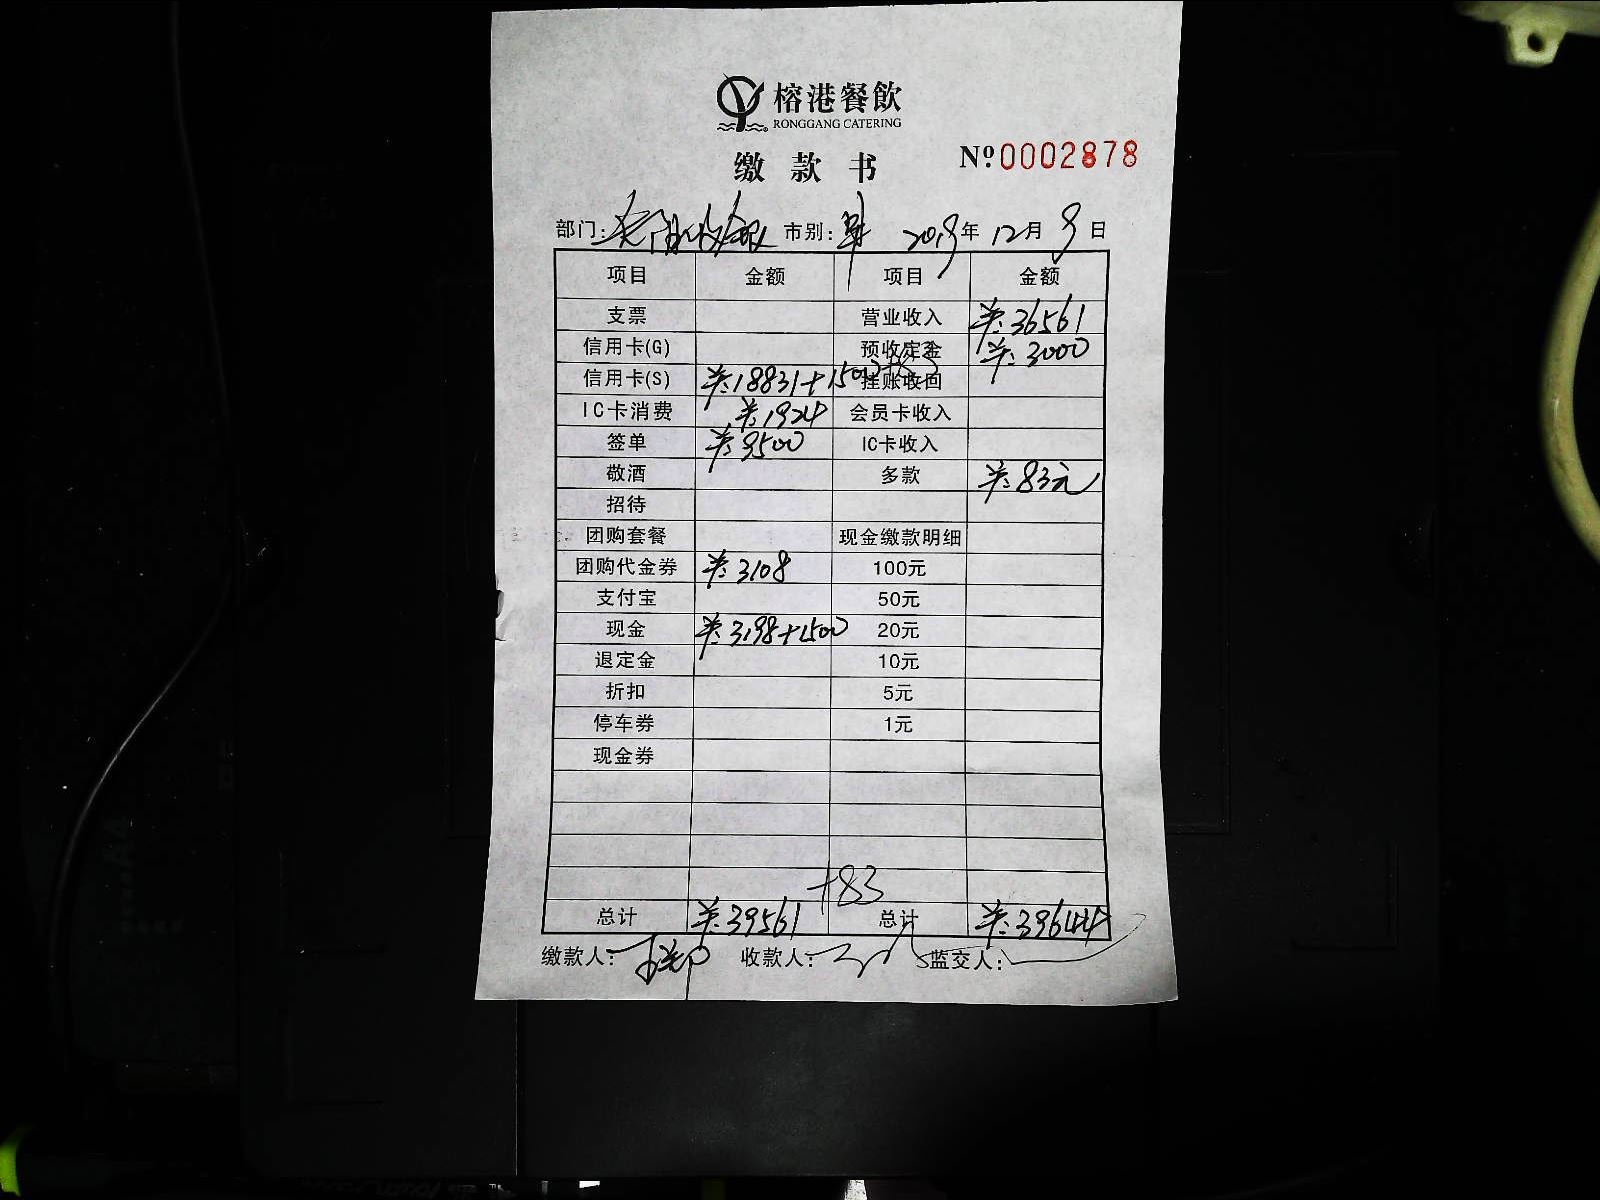 榕港餐飲
RONGGANG CATERING
缴款书
№0002878
部门: 市别: 2019年12月9日
项目 金额 项目 金额
支票 营业收入 ¥:36561
信用卡(G) 预收定金 ¥:3000
信用卡(S) ¥:18831+1500+83 挂账收回
IC卡消费 ¥:1924 会员卡收入
签单 ¥:9500 IC卡收入
敬酒 多款 ¥:83元
招待
团购套餐 现金缴款明细
团购代金券 ¥:3108 100元
支付宝 50元
现金 ¥:3198+1500 20元
退定金 10元
折扣 5元
停车券 1元
现金券
+83
总计 ¥:39561 总计 ¥:39644
缴款人: 收款人: 监交人: